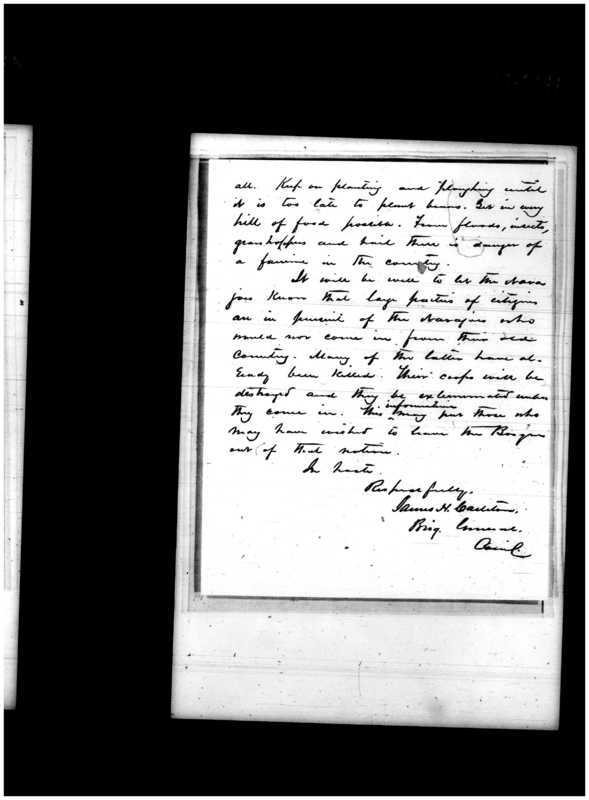 all. Keep on planting and ploughing until
it is too late to plant beans. Get in every
hill of food possible. From floods, insects,
grasshoppers and hail there is danger of
a famine in the country.
It will be well to let the Nava
joes know that large parties of citizens
are in pursuit of the Navajoes who
would not come in from their old
country. Many of the latter have al-
ready been killed. Their crops will be
destroyed and they be exterminated unless
they come in. This information may put those who
may have wished to leave the Bosque
out of that notion.
In haste.
Respectfully,
James H. Carleton.
Brig. General.
Com'g.